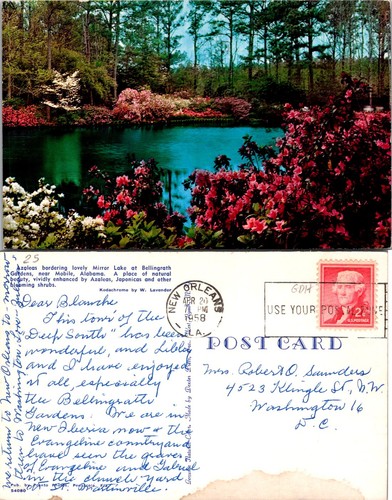 25
Azaleas bordering lovely Mirror Lake at Bellingrath
Gardens, near Mobile, Alabama. A place of natural
beauty, vividly enhanced by Azaleas, Japonicas and other
blooming shrubs.
Kodachrome by W. Lavendar
Dear Blanche
This tour of the
"Deep South" has been
wonderful, and Libby
and I have enjoyed
it all, especially
the Bellingrath
Gardens. We are in
New Iberia now & the
Evangeline country and
have seen the graves
of Evangeline and Gabriel
in the church yard
in St. Martinville.
We return to New Orleans to-morrow
then to Washington
NEW ORLEANS
APR 20
PM
1958
LA.
USE YOUR
2¢
POST CARD
Mrs. Robert O. Saunders
4523 Klingle St, N.W.
Washington 16
D.C.